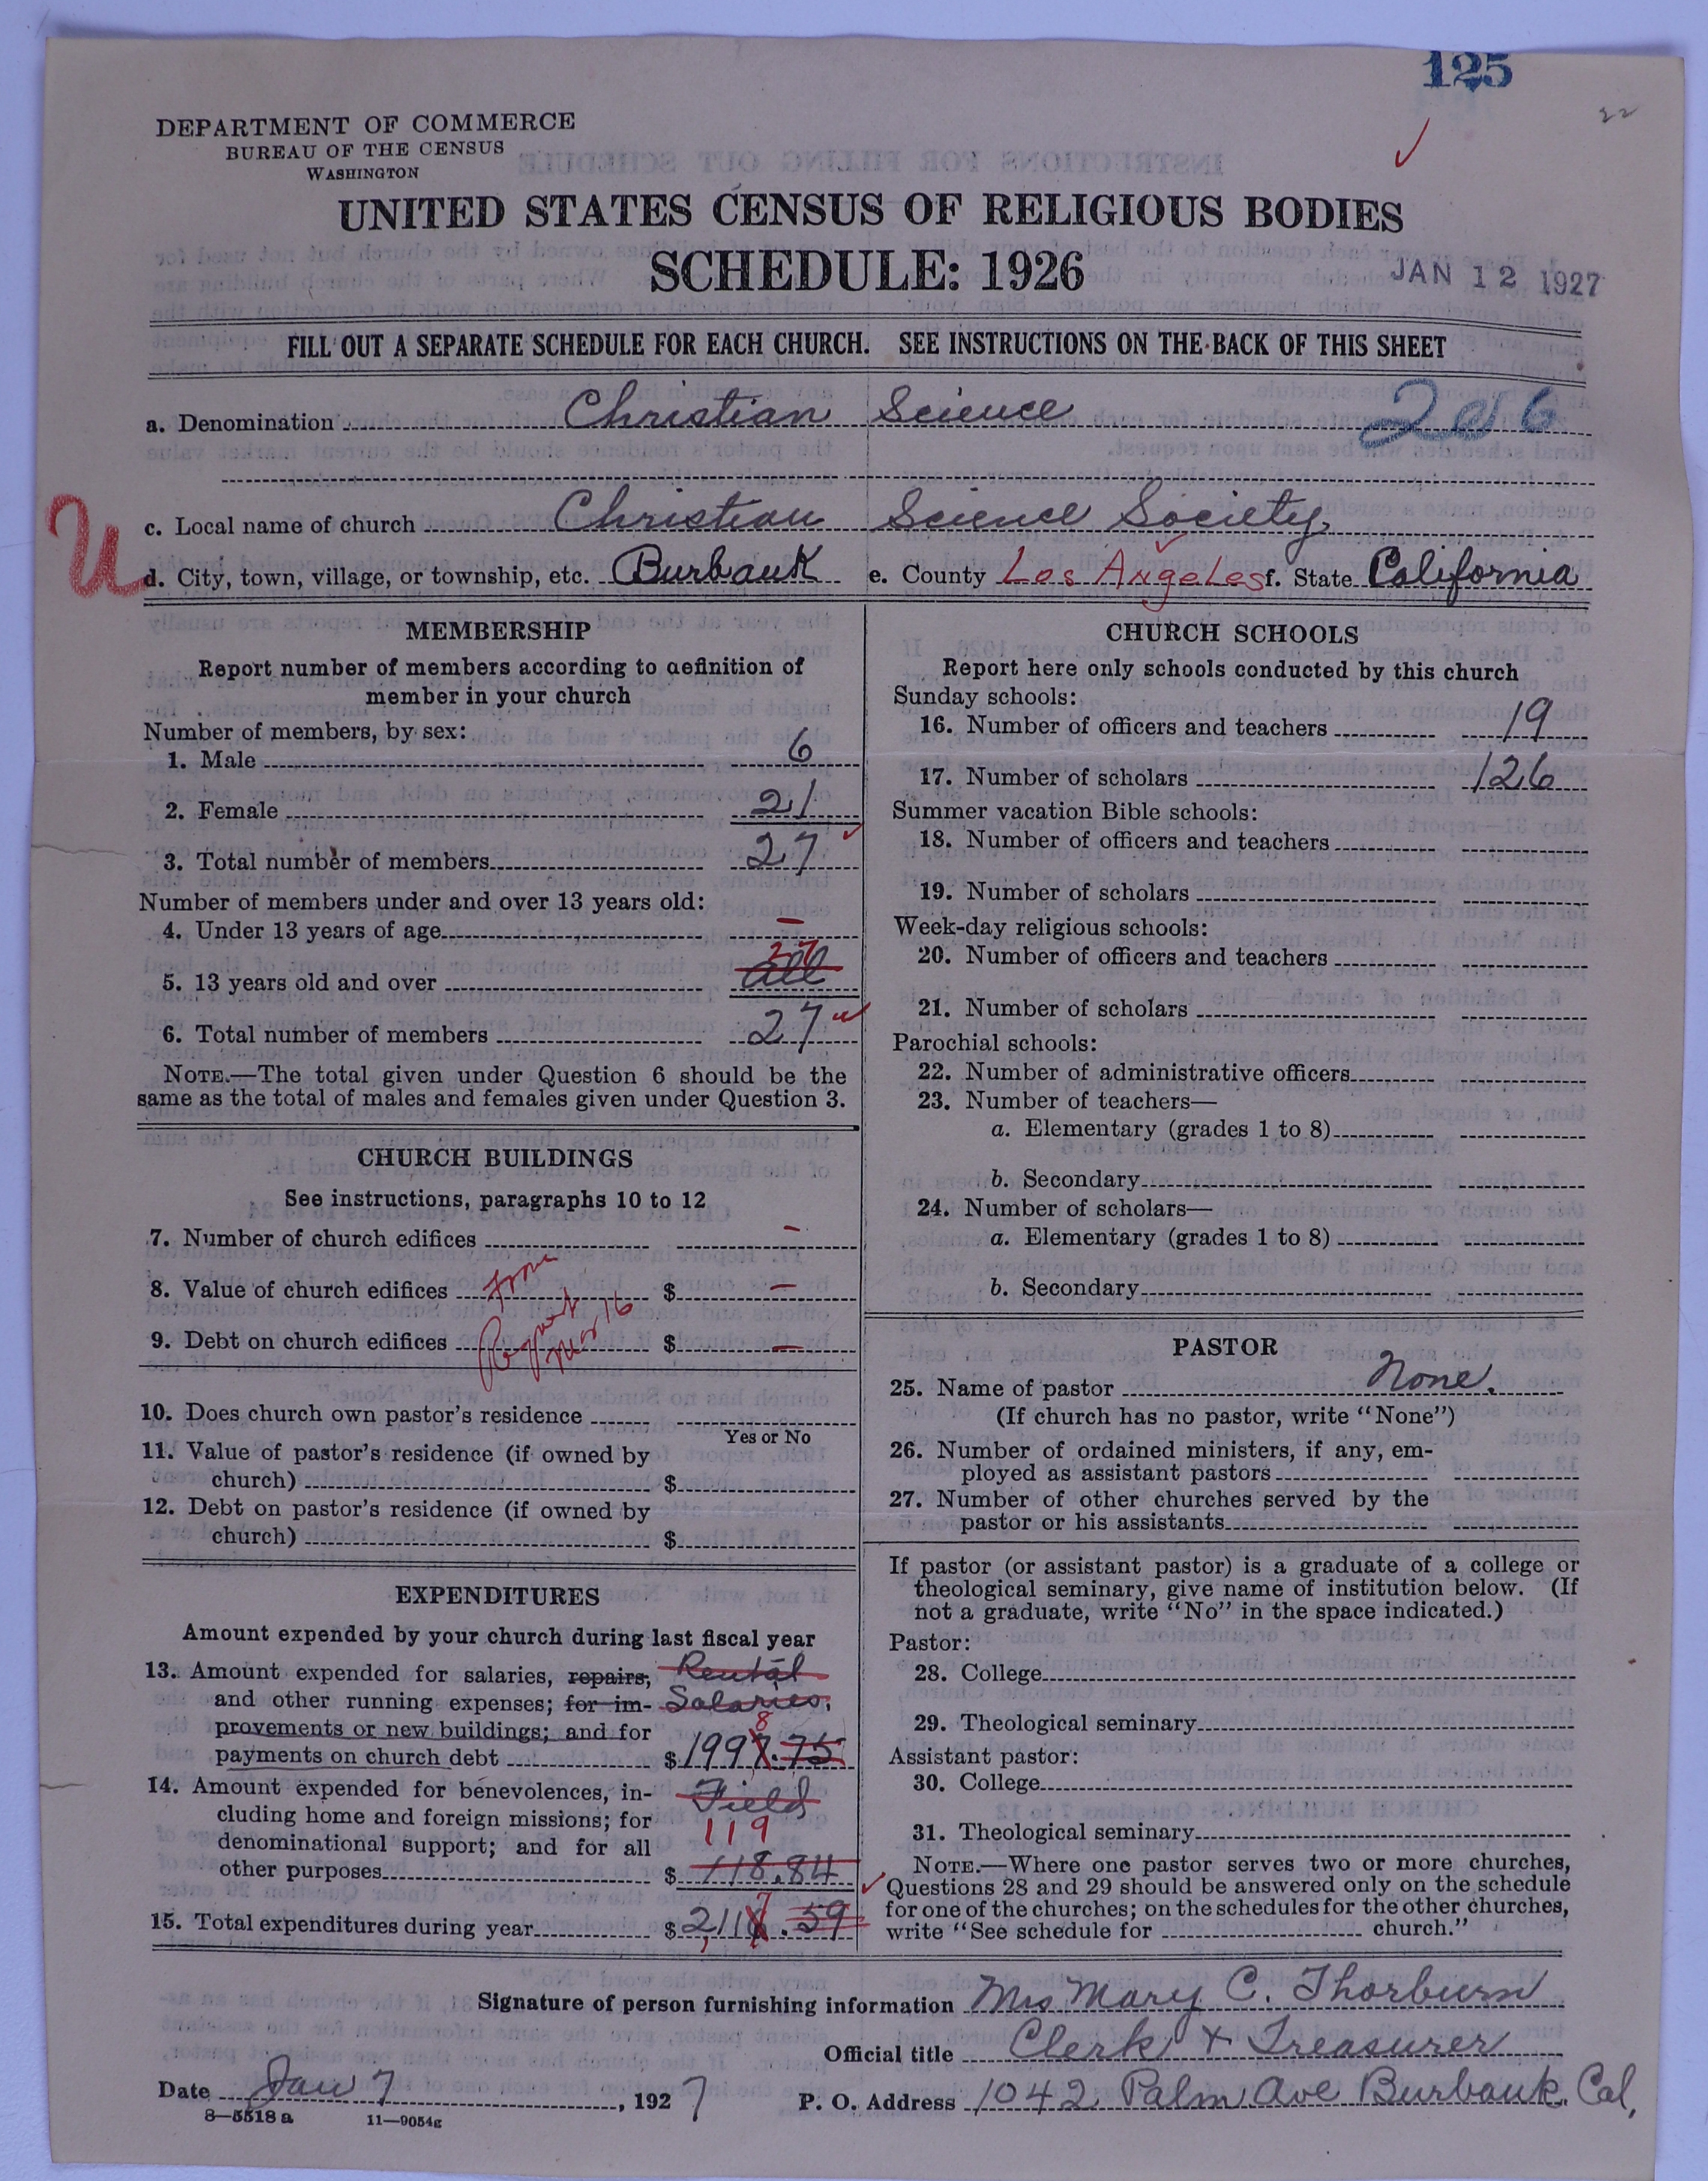 125
22
DEPARTMENT OF COMMERCE
BUREAU OF THE CENSUS
WASHINGTON
UNITED STATES CENSUS OF RELIGIOUS BODIES
SCHEDULE: 1926
JAN 12 1927
FILL OUT A SEPARATE SCHEDULE FOR EACH CHURCH. SEE INSTRUCTIONS ON THE BACK OF THIS SHEET
a. Denomination Christian Science
c. Local name of church Christian Science Society,
U
d. City, town, village, or township, etc. Burbank e. County Los Angeles f. State California
MEMBERSHIP
Report number of members according to definition of
member in your church
Number of members, by sex:
1. Male 6
2. Female 21
3. Total number of members 27
Number of members under and over 13 years old:
4. Under 13 years of age –
27
5. 13 years old and over all
6. Total number of members 27
NOTE.—The total given under Question 6 should be the
same as the total of males and females given under Question 3.
CHURCH BUILDINGS
See instructions, paragraphs 10 to 12
7. Number of church edifices –
from
8. Value of church edifices $ –
Mar 16
9. Debt on church edifices $ –
10. Does church own pastor's residence
Yes or No
11. Value of pastor's residence (if owned by
church) $
12. Debt on pastor's residence (if owned by
church) $
EXPENDITURES
Amount expended by your church during last fiscal year
13. Amount expended for salaries, repairs, Rental
and other running expenses; for im- Salaries,
provements or new buildings; and for 8
payments on church debt $ 1997.75
14. Amount expended for benevolences, in- Field
cluding home and foreign missions; for 119
denominational support; and for all
other purposes $ 118.84
7
15. Total expenditures during year $ 2116.59
CHURCH SCHOOLS
Report here only schools conducted by this church
Sunday schools:
16. Number of officers and teachers 19
17. Number of scholars 126
Summer vacation Bible schools:
18. Number of officers and teachers
19. Number of scholars
Week-day religious schools:
20. Number of officers and teachers
21. Number of scholars
Parochial schools:
22. Number of administrative officers
23. Number of teachers—
a. Elementary (grades 1 to 8)
b. Secondary
24. Number of scholars—
a. Elementary (grades 1 to 8)
b. Secondary
PASTOR
25. Name of pastor None.
(If church has no pastor, write "None")
26. Number of ordained ministers, if any, em-
ployed as assistant pastors
27. Number of other churches served by the
pastor or his assistants
If pastor (or assistant pastor) is a graduate of a college or
theological seminary, give name of institution below. (If
not a graduate, write "No" in the space indicated.)
Pastor:
28. College
29. Theological seminary
Assistant pastor:
30. College
31. Theological seminary
NOTE.—Where one pastor serves two or more churches,
Questions 28 and 29 should be answered only on the schedule
for one of the churches; on the schedules for the other churches,
write "See schedule for church."
Signature of person furnishing information Mrs Mary C. Thorburn
Official title Clerk & Treasurer
Date Jan 7, 1927 P. O. Address 1042 Palm Ave Burbank, Cal,
8—5518 a 11—9054g